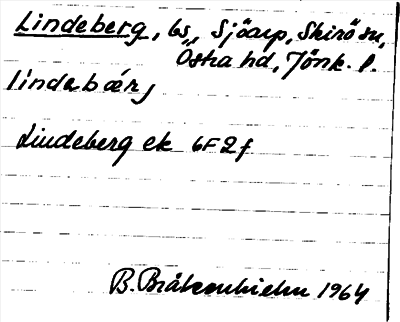 Lindeberg, bs, Sjöarp, Skirö sn,
Östra hd, Jönk. l.
lindabærj
Lindeberg ek 6F2f
B. Bråkenhielm 1964